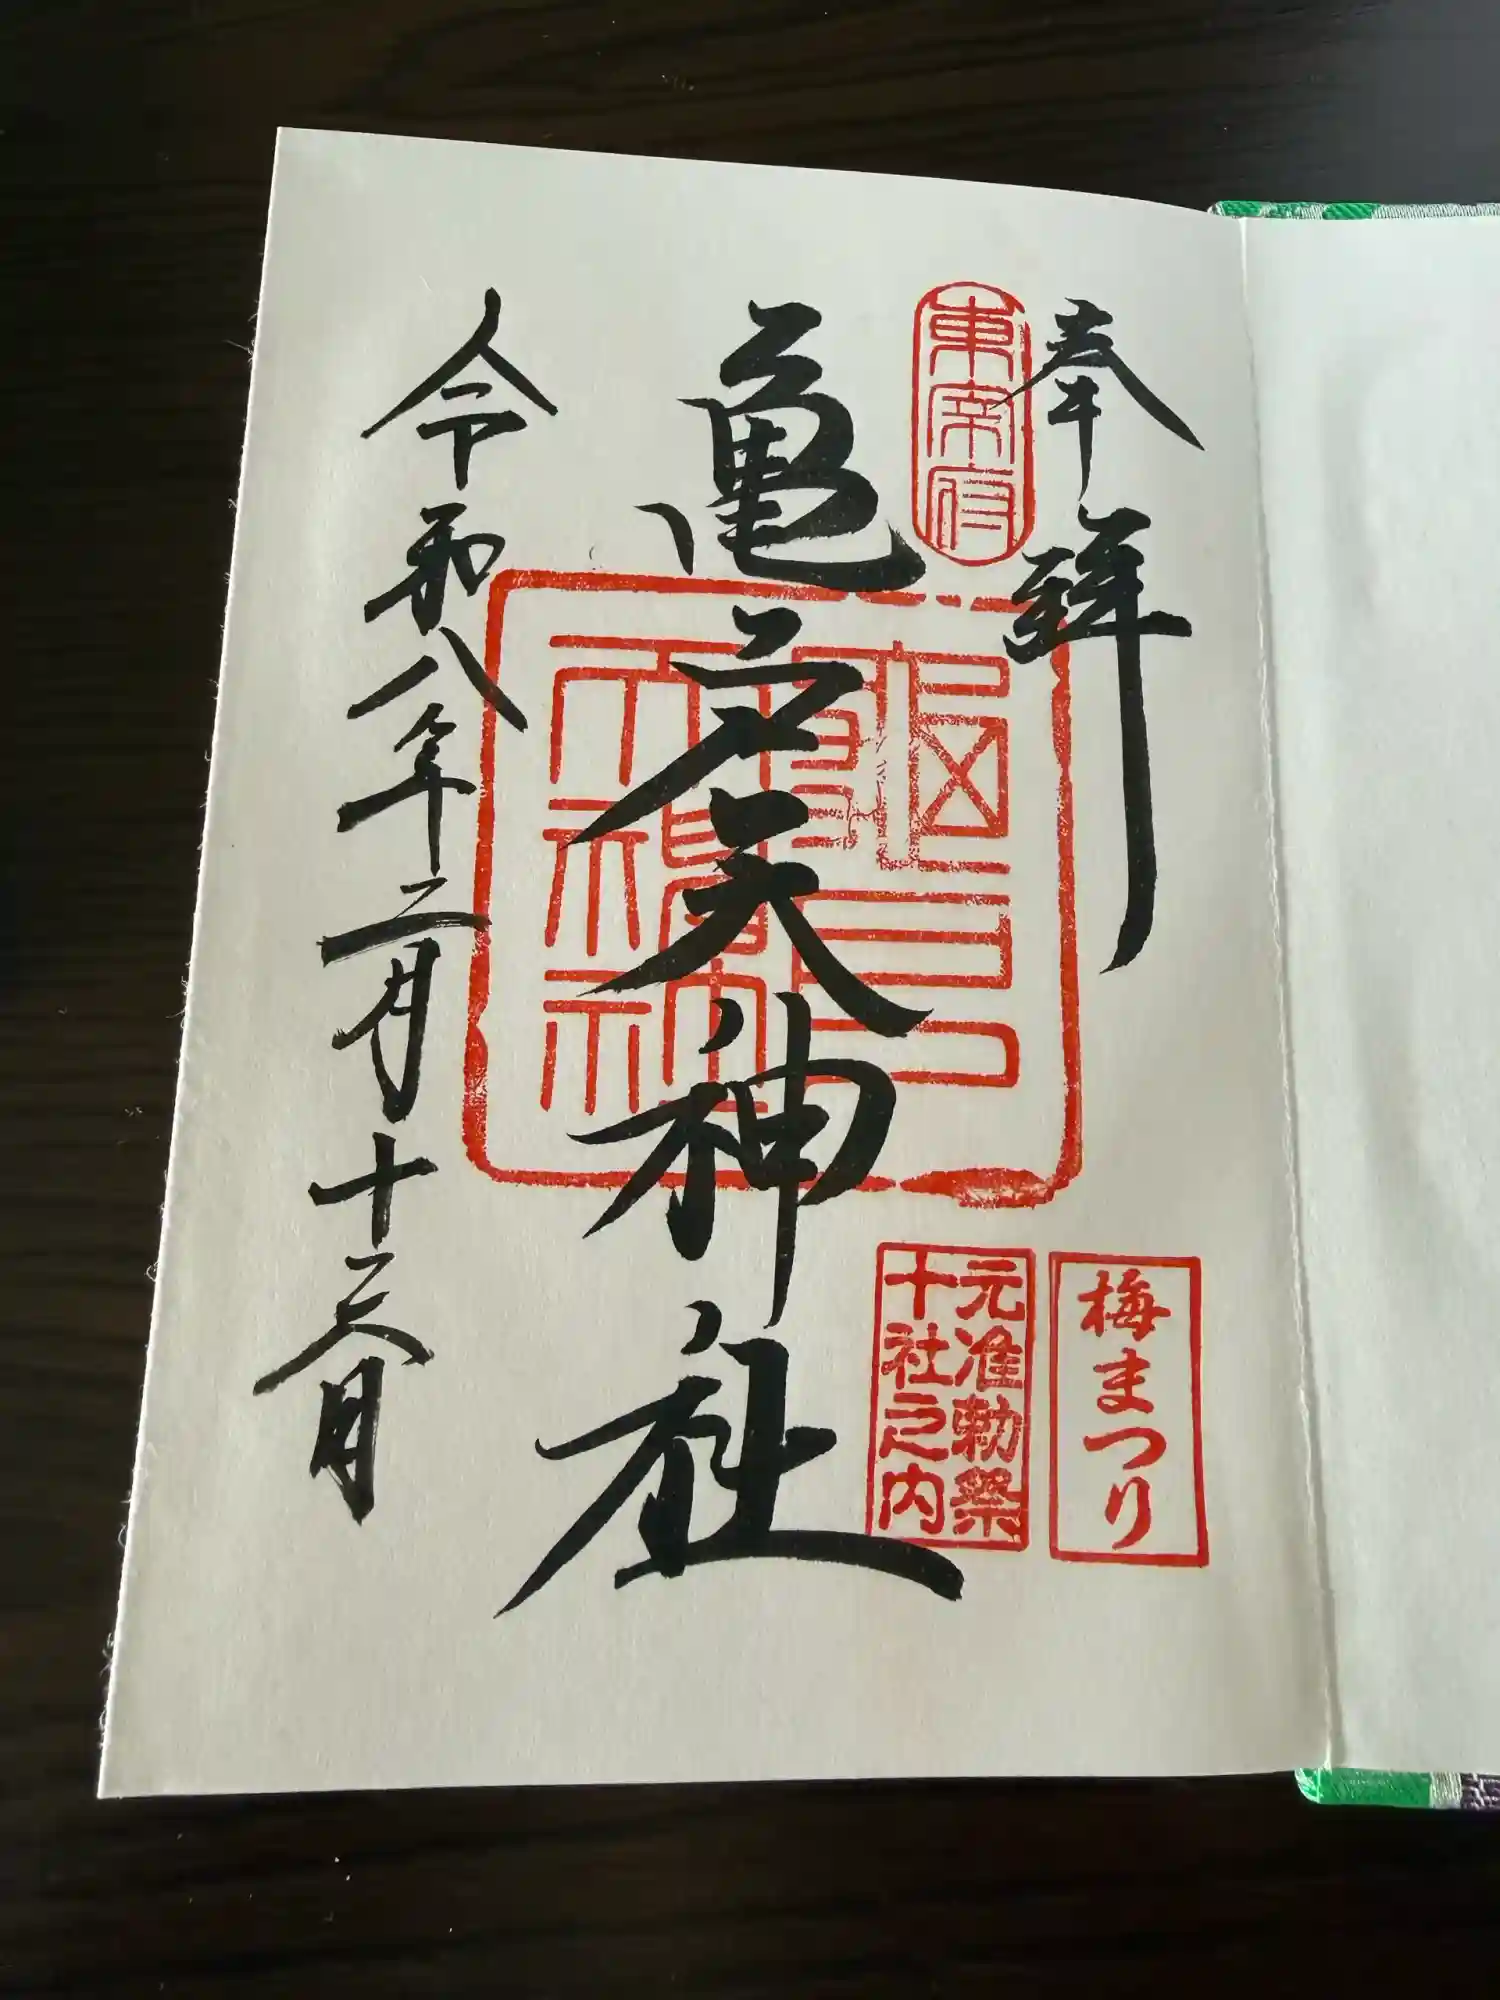 奉拝
東宰府
龜戸
天神社
亀戸天神社
梅まつり
元准勅祭
十社之内
令和八年二月十六日